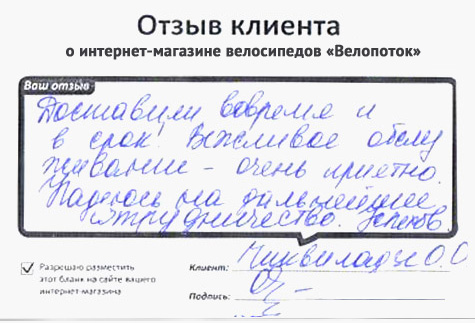 Отзыв клиента
о интернет-магазине велосипедов «Велопоток»
Ваш отзыв
Доставили вовремя и
в срок! Вежливое обслу
живание - очень приятно.
Надеюсь на дальнейшее
сотрудничество. Успехов.
Разрешаю разместить
этот бланк на сайте вашего
интернет-магазина
Клиент: Чиквиладзе О.О
Подпись: